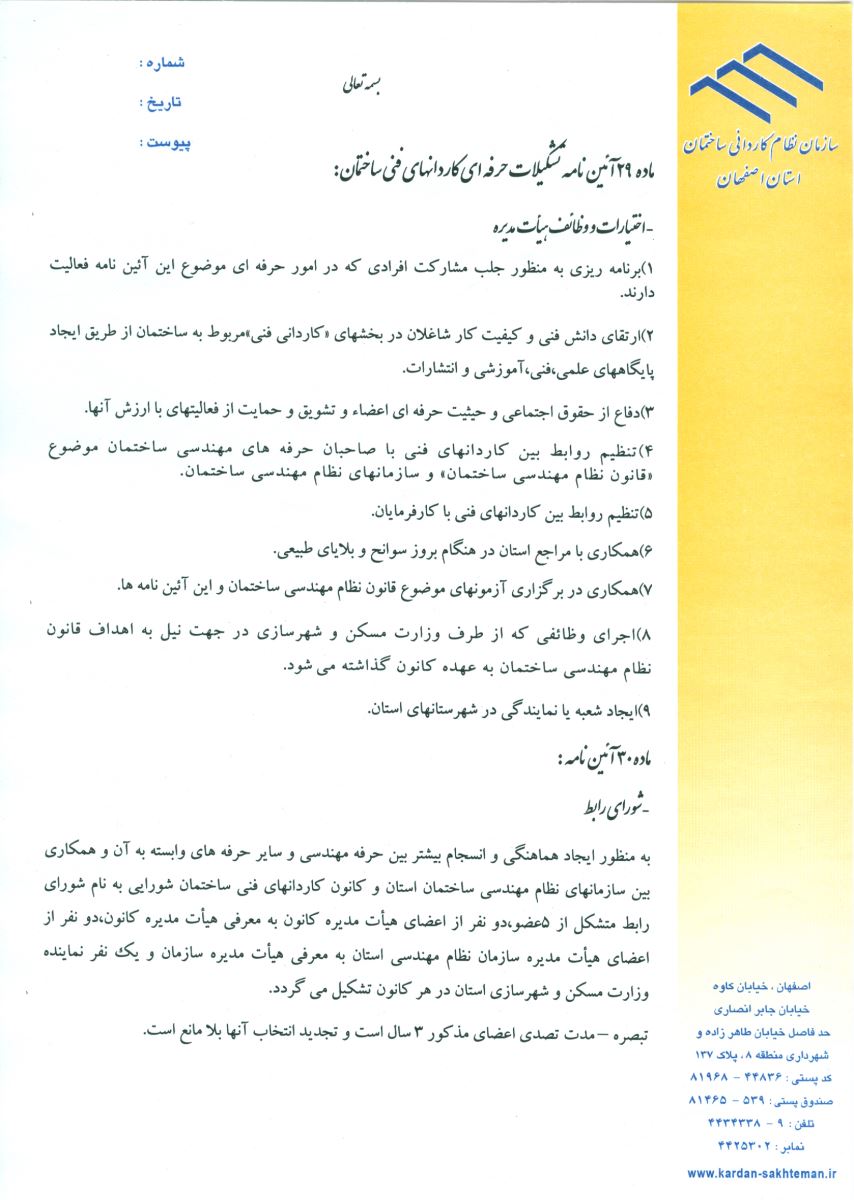 شماره :
تاریخ :
پیوست :
بسمه تعالی
سازمان نظام کاردانی ساختمان
استان اصفهان
ماده ۲۹آئین نامه تشکیلات حرفه ای کاردانهای فنی ساختمان:
-اختیارات و وظائف هیأت مدیره
۱)برنامه ریزی به منظور جلب مشارکت افرادی که در امور حرفه ای موضوع این آئین نامه فعالیت
دارند.
۲)ارتقای دانش فنی و کیفیت کار شاغلان در بخشهای «کاردانی فنی»مربوط به ساختمان از طریق ایجاد
پایگاههای علمی،فنی،آموزشی و انتشارات.
۳)دفاع از حقوق اجتماعی و حیثیت حرفه ای اعضاء و تشویق و حمایت از فعالیتهای با ارزش آنها.
۴)تنظیم روابط بین کاردانهای فنی با صاحبان حرفه های مهندسی ساختمان موضوع
«قانون نظام مهندسی ساختمان» و سازمانهای نظام مهندسی ساختمان.
۵)تنظیم روابط بین کاردانهای فنی با کارفرمایان.
۶)همکاری با مراجع استان در هنگام بروز سوانح و بلایای طبیعی.
۷)همکاری در برگزاری آزمونهای موضوع قانون نظام مهندسی ساختمان و این آئین نامه ها.
۸)اجرای وظائفی که از طرف وزارت مسکن و شهرسازی در جهت نیل به اهداف قانون
نظام مهندسی ساختمان به عهده کانون گذاشته می شود.
۹)ایجاد شعبه یا نمایندگی در شهرستانهای استان.
ماده ۳۰آئین نامه :
-شورای رابط
به منظور ایجاد هماهنگی و انسجام بیشتر بین حرفه مهندسی و سایر حرفه های وابسته به آن و همکاری
بین سازمانهای نظام مهندسی ساختمان استان و کانون کاردانهای فنی ساختمان شورایی به نام شورای
رابط متشکل از ۵عضو،دو نفر از اعضای هیأت مدیره کانون به معرفی هیأت مدیره کانون،دو نفر از
اعضای هیأت مدیره سازمان نظام مهندسی استان به معرفی هیأت مدیره سازمان و یک نفر نماینده
وزارت مسکن و شهرسازی استان در هر کانون تشکیل می گردد.
تبصره – مدت تصدی اعضای مذکور ۳ سال است و تجدید انتخاب آنها بلا مانع است.
اصفهان ، خیابان کاوه
خیابان جابر انصاری
حد فاصل خیابان طاهر زاده و
شهرداری منطقه ۸ ، پلاک ۱۳۷
کد پستی : ۴۴۸۳۶ – ۸۱۹۶۸
صندوق پستی : ۵۳۹ – ۸۱۴۶۵
تلفن : ۹ – ۴۴۳۴۳۳۸
نمابر : ۴۴۲۵۳۰۲
www.kardan-sakhteman.ir